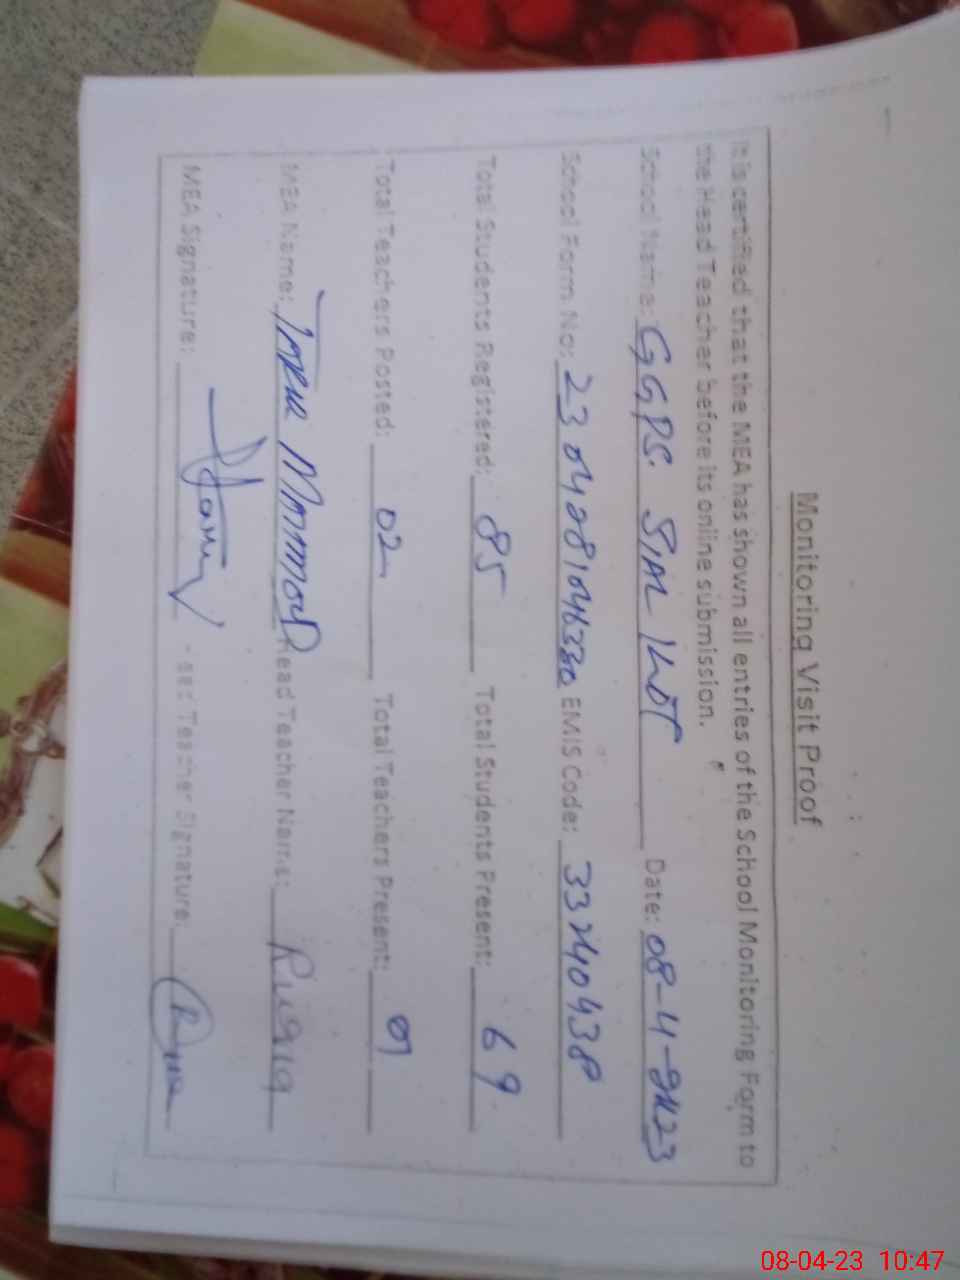 Monitoring Visit Proof
It is certified that the MEA has shown all entries of the School Monitoring Form to
the Head Teacher before its online submission.
School Name: GGPS. SIAL KOT Date: 08-4-2023
School Form No: EMIS Code: 33240438
Total Students Registered: 85 Total Students Present: 69
Total Teachers Posted: 02 Total Teachers Present: 01
MEA Name: Head Teacher Name:
MEA Signature: Teacher Signature:
08-04-23 10:47